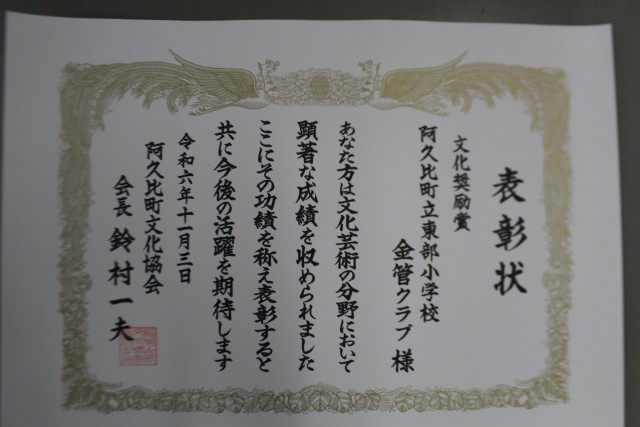 表彰状
文化奨励賞
阿久比町立東部小学校
金管クラブ 様
あなた方は文化芸術の分野において
顕著な成績を収められました
ここにその功績を称え表彰すると
共に今後の活躍を期待します
令和六年十一月三日
阿久比町文化協会
会長 鈴村一夫